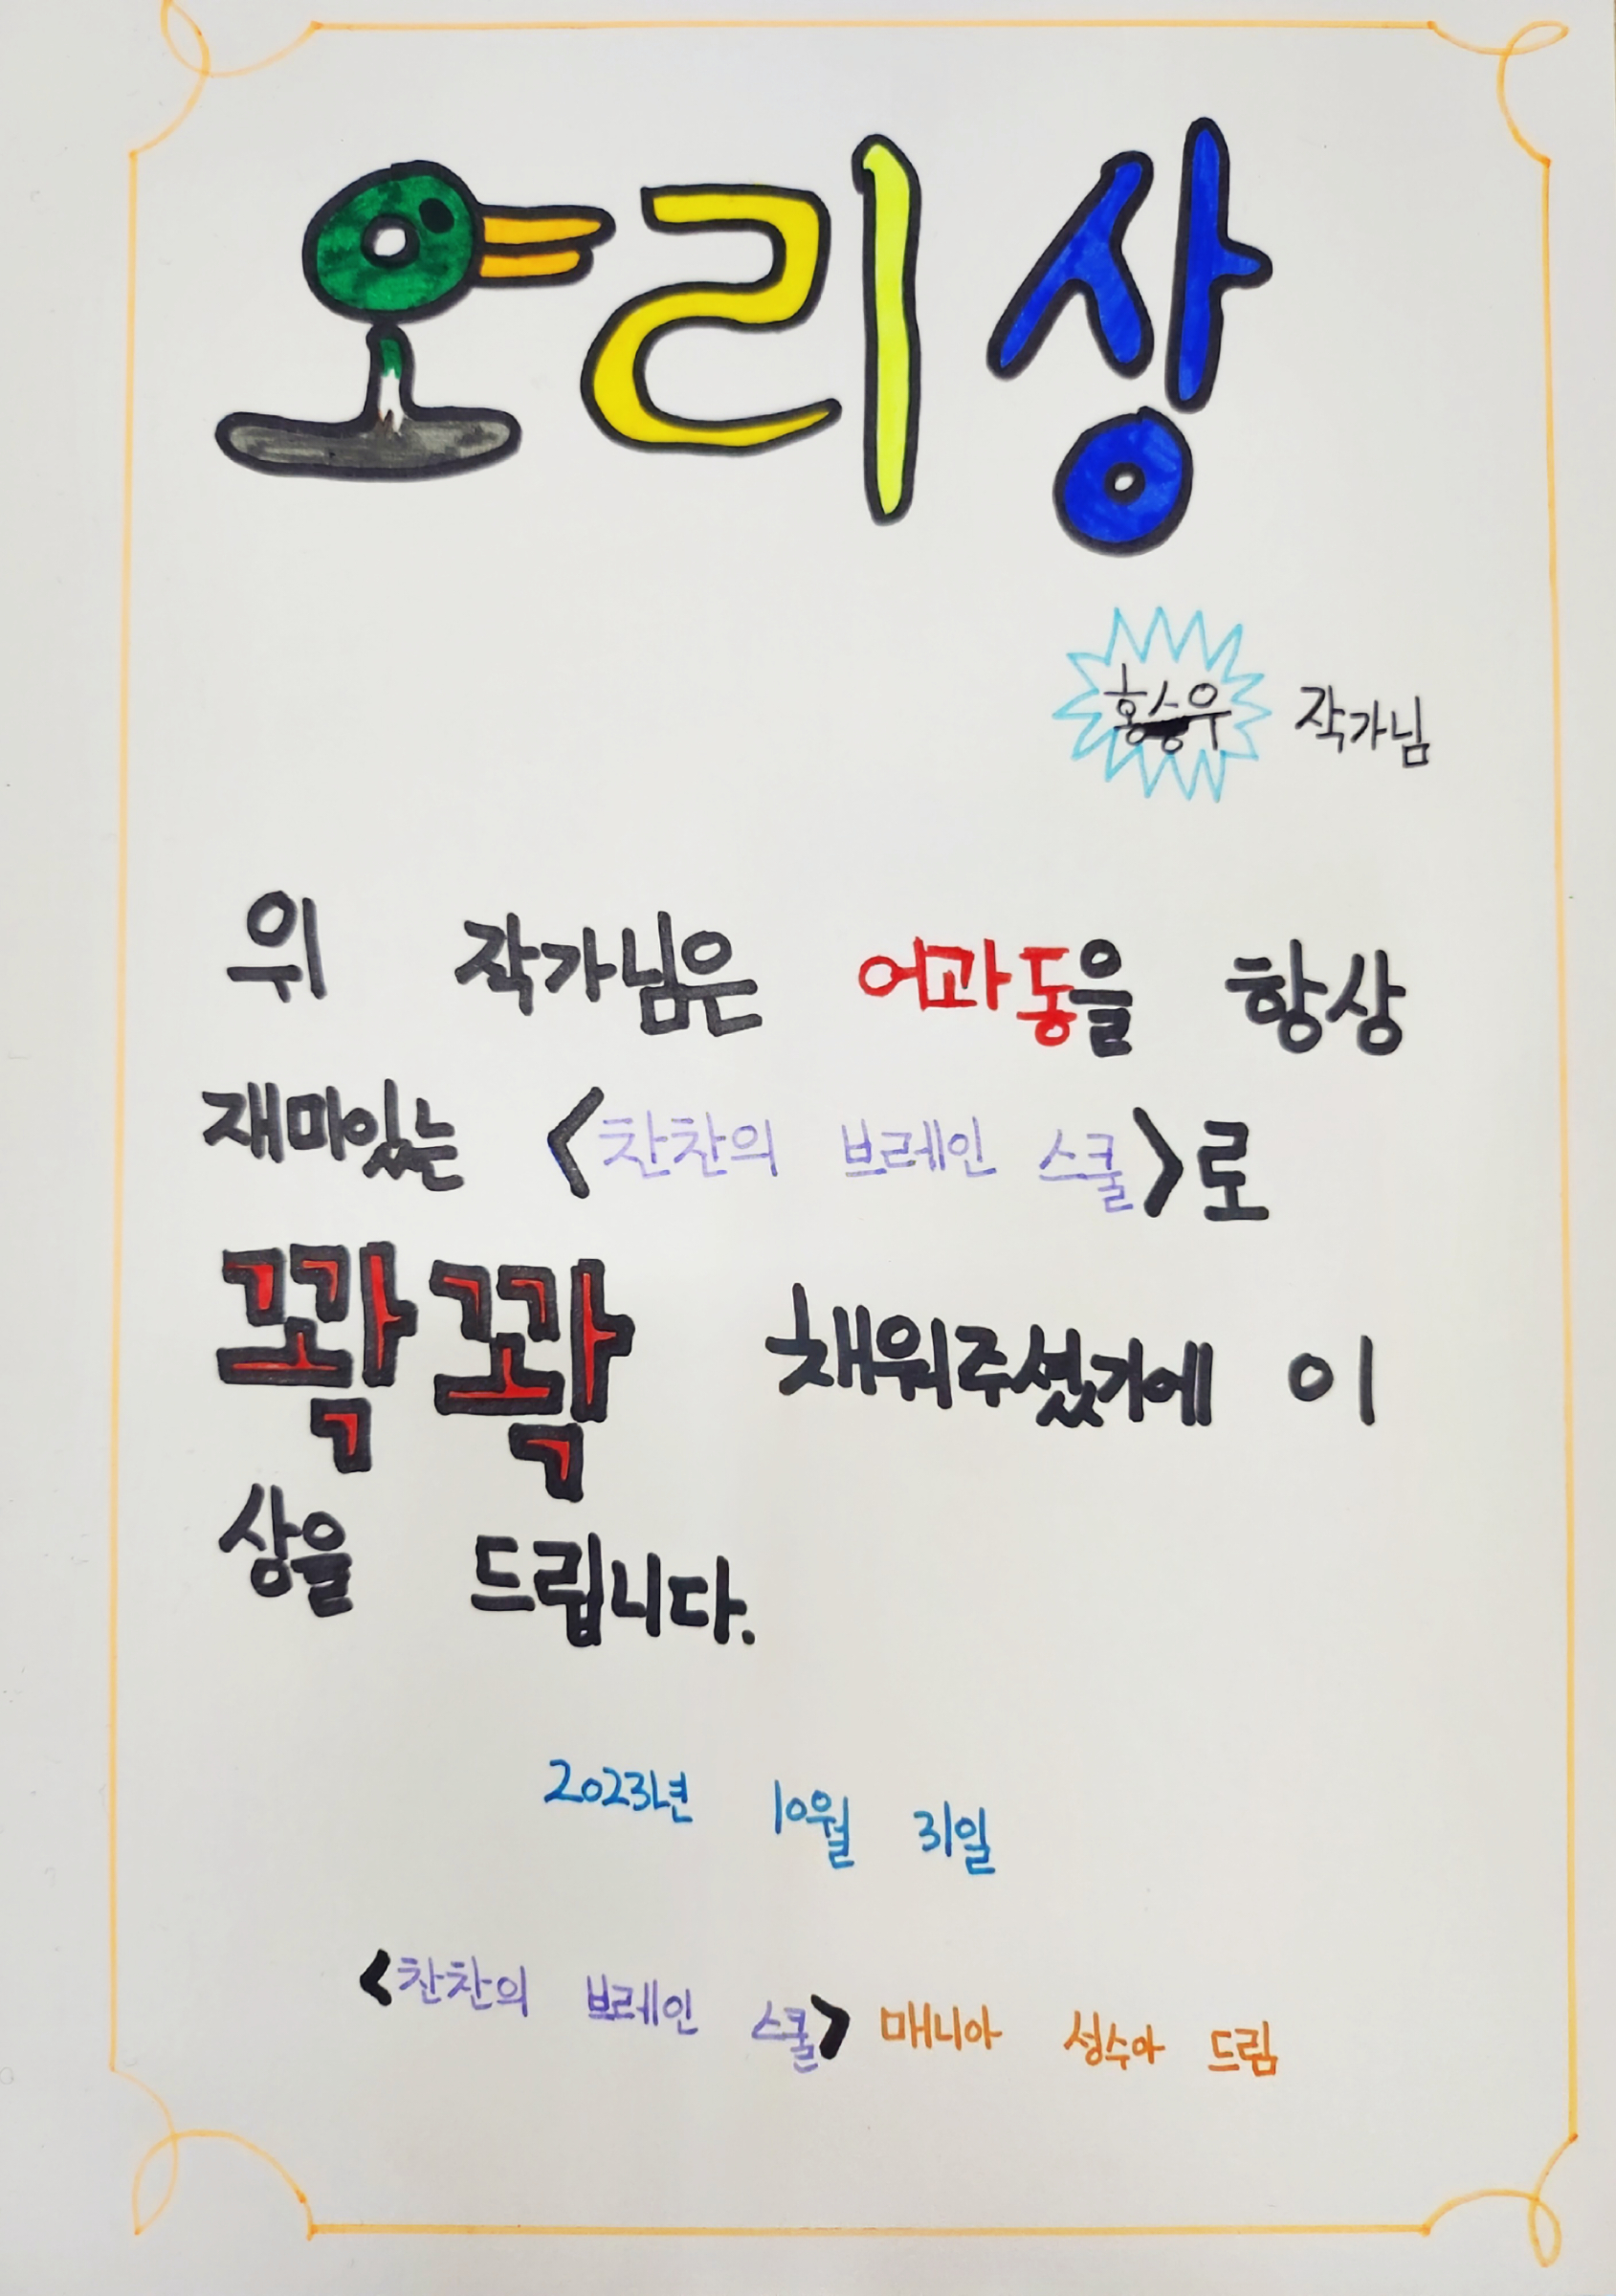 오리상
홍승우 작가님
위 작가님은 어과동을 항상
재마있는 <찬찬의 브레인 스쿨>로
꽉꽉 채워주셨기에 이
상을 드립니다.
2023년 10월 31일
<찬찬의 브레인 스쿨> 매니아 성수아 드림